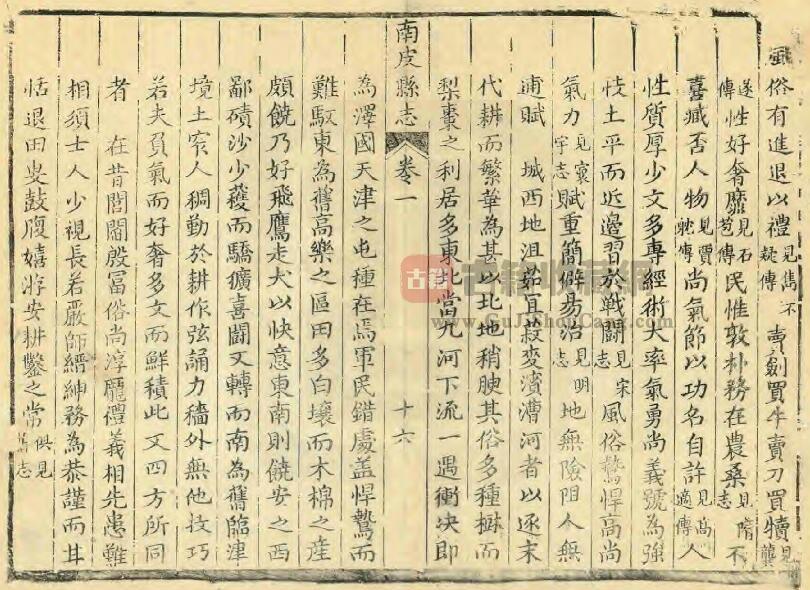 風俗有進退以禮見雋不疑傳賣劍買牛賣刀買犢見龔
遂傳性好奢靡見石苞傳民性敦朴務在農桑見隋志不
喜臧否人物見賈躭傳尚氣節以功名自許見高適傳人
性質厚少文多專經術大率氣勇尚義號為強
忮土平而近邊習於戰鬬見宋志風俗鷙悍高尚
氣力見寰宇志賦重簡僻易治見明志地無險阻人無
逋賦 城西地沮茹宜菽麥濱漕河者以逐末
代耕而繁華為甚以北地稍腴其俗多種
梨棗之利居多東北當九河下流一遇衝決即
南皮縣志 卷一 十六
為澤國天津之屯種在焉軍民錯處盖悍鷙而
難馭東為舊高樂之區田多白壤而木棉之產
頗饒乃好飛鷹走犬以快意東南則饒安之西
鄙磧沙少穫而驕獷喜鬬又轉而南為舊臨津
境土窄人稠勤於耕作弦誦力穡外無他技巧
若夫負氣而好奢多文而鮮積此又四方所同
者 在昔閭閻殷富俗尚淳龐禮義相先患難
相須士人少視長若嚴師縉紳務為恭謹而甘
恬退田叟鼓腹嬉游安耕鑿之常俱見舊志
古籍
古籍收藏網
www.GuJiShouCang.com